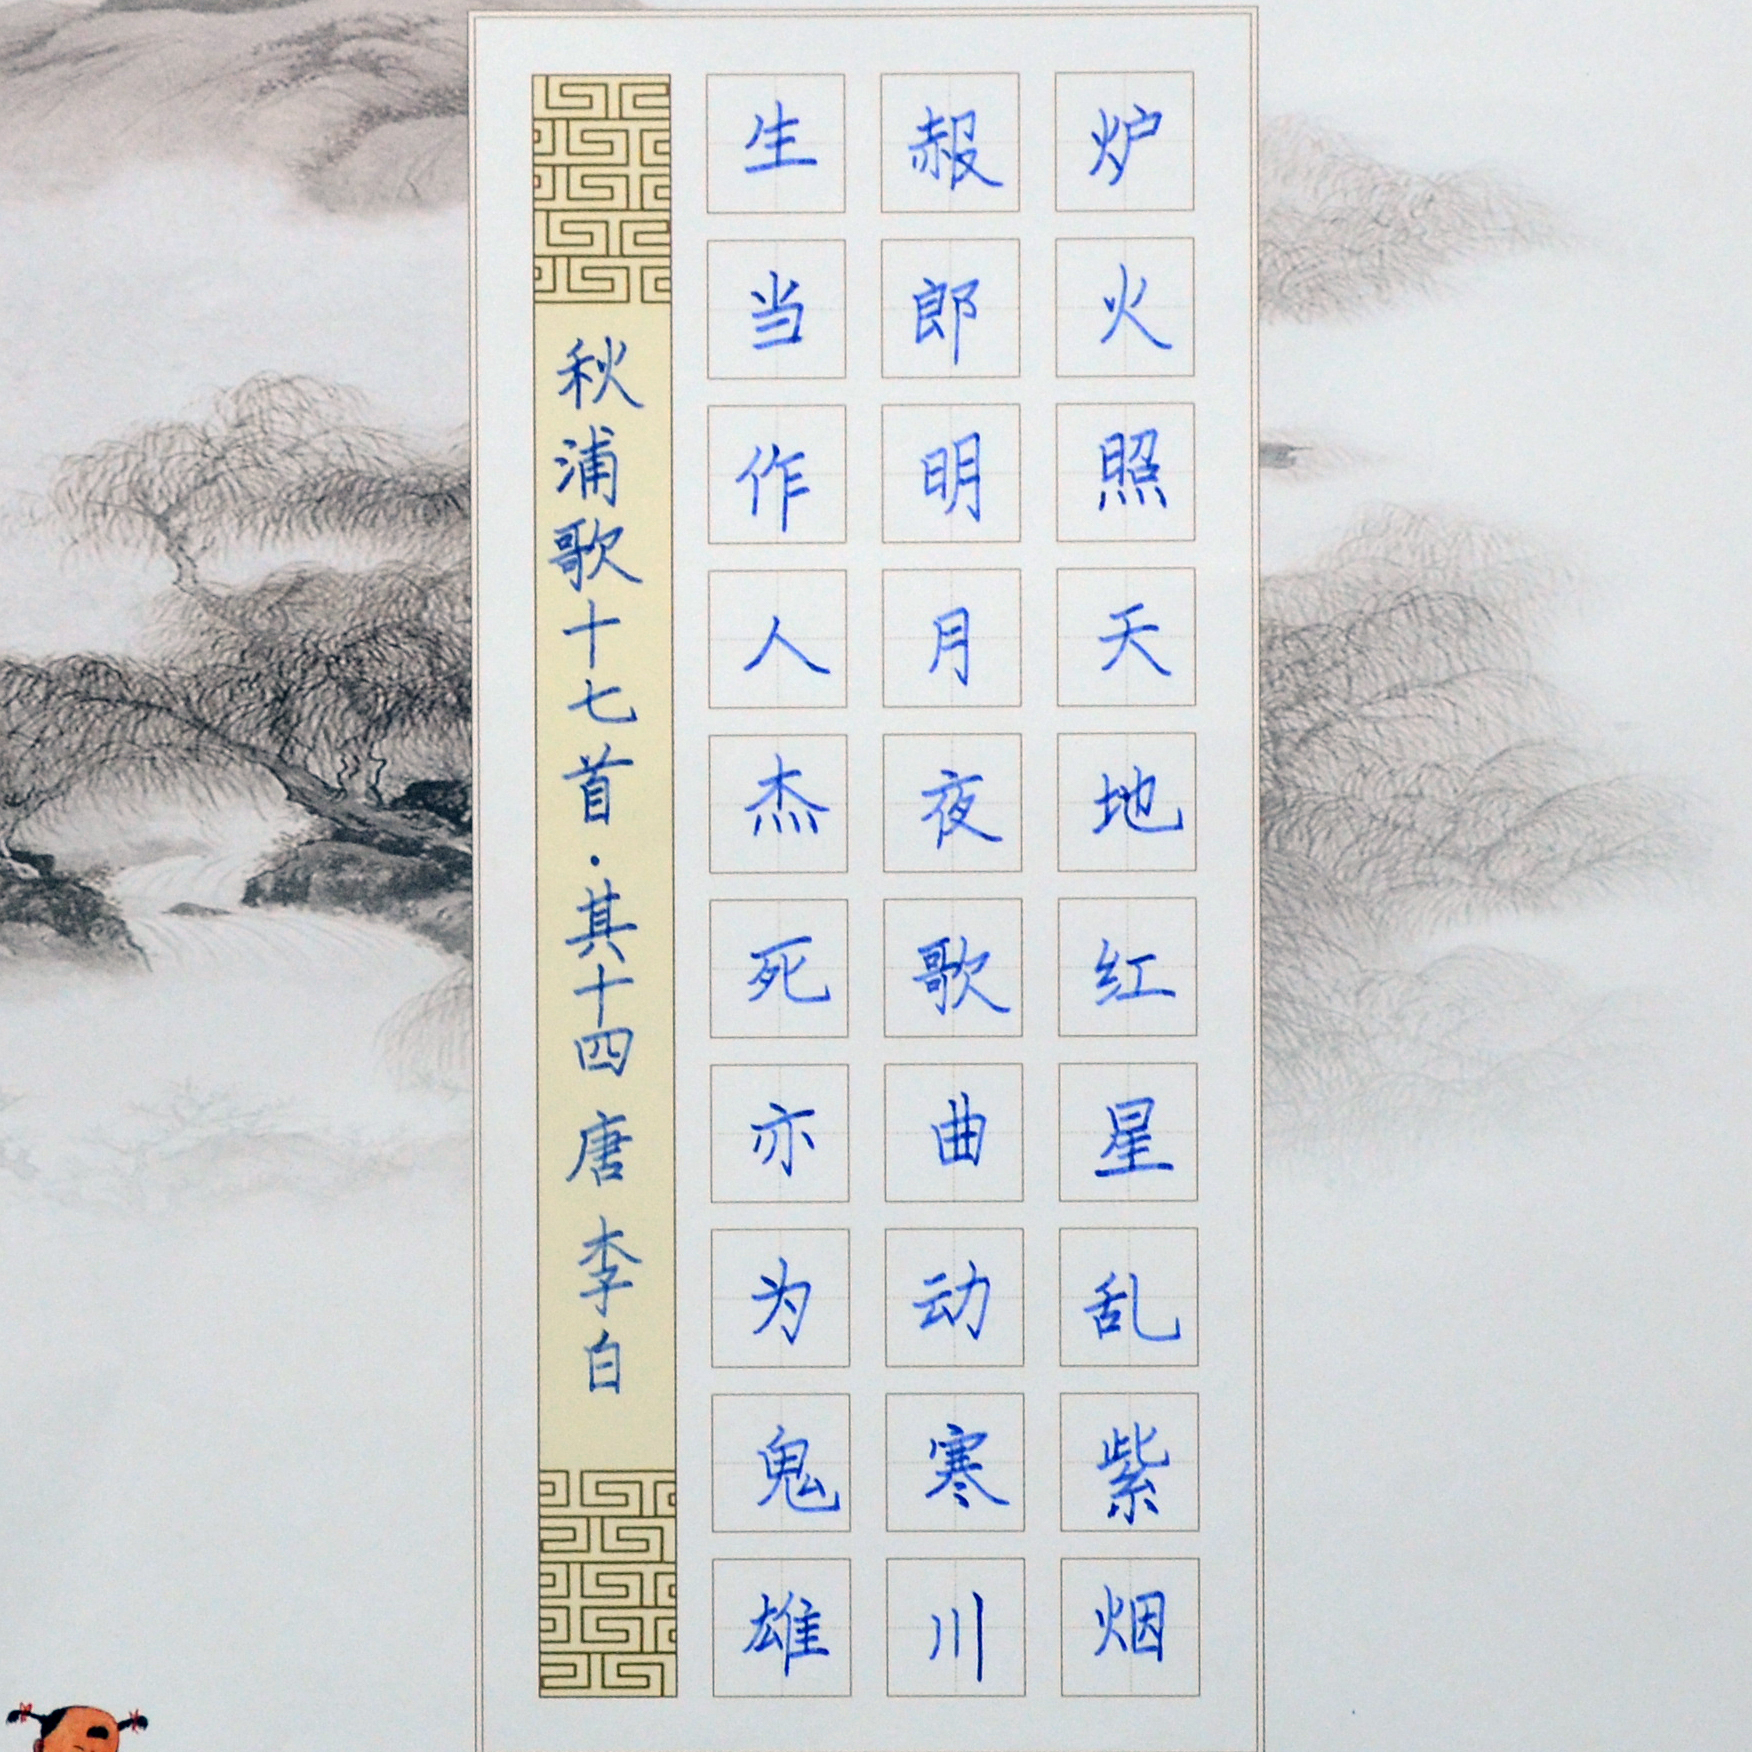 炉火照天地红星乱紫烟
赧郎明月夜歌曲动寒川
生当作人杰死亦为鬼雄
秋浦歌十七首·其十四 唐 李白